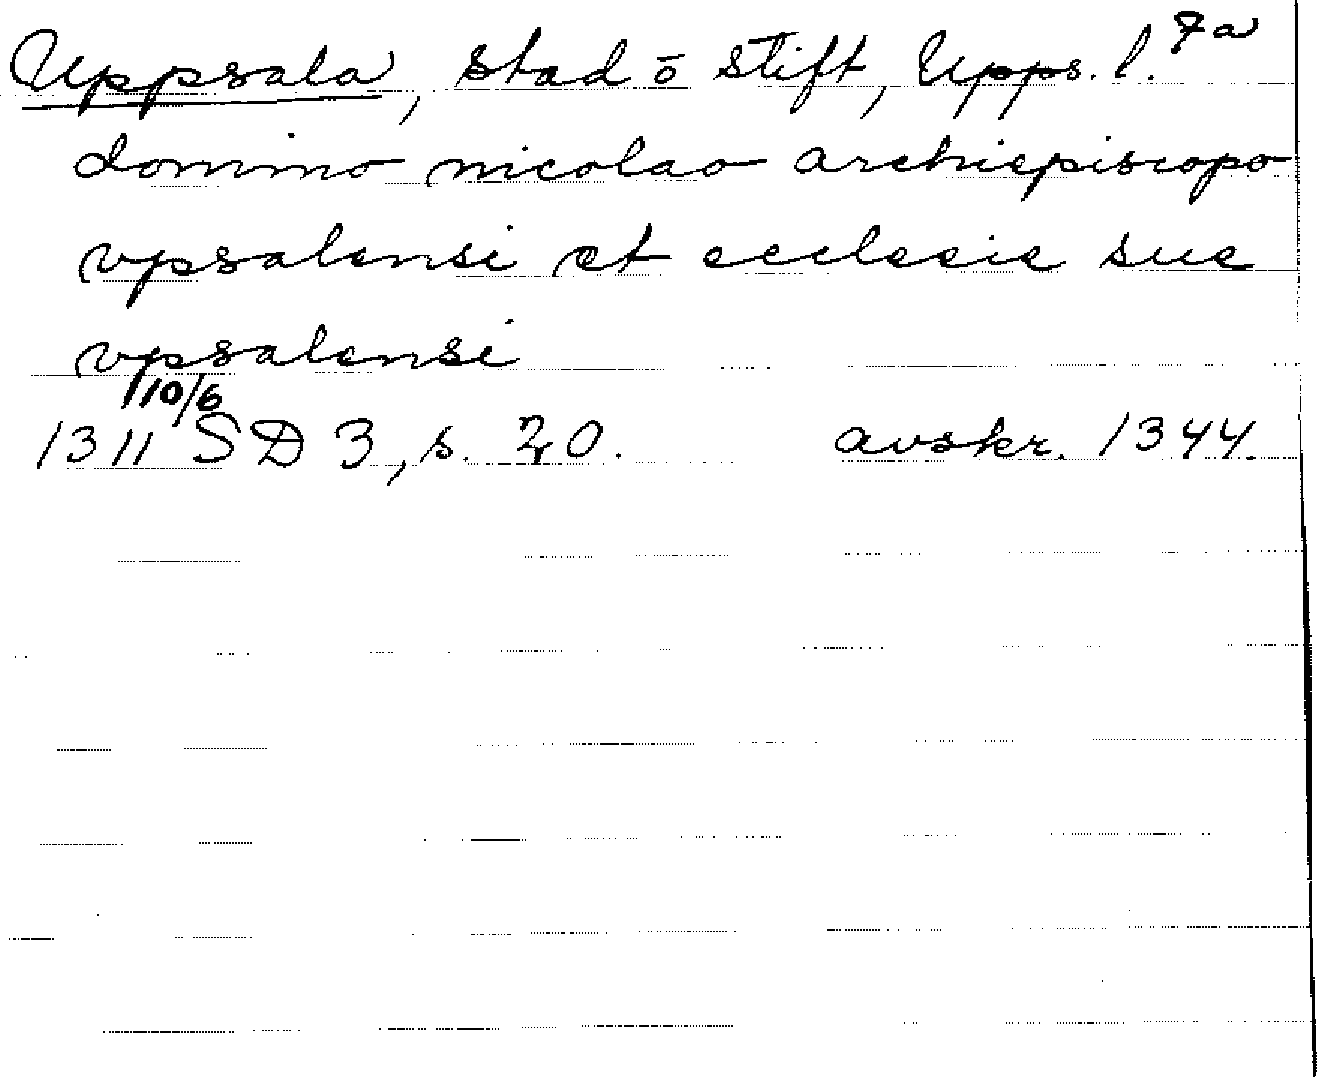 Uppsala, stad o stift, Upps. l. 7a
domino nicolao archiepiscopo
vpsalensi et ecclesie sue
vpsalensi
10/6
1311 SD 3, s. 20. avskr. 1344.